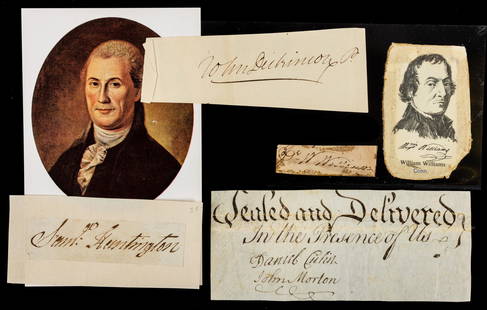 John Dickinson
Wm Williams
Wm Williams
William Williams
Conn.
Saml Huntington
Sealed and Delivered
In the Presence of Us
Daniel
John Morton